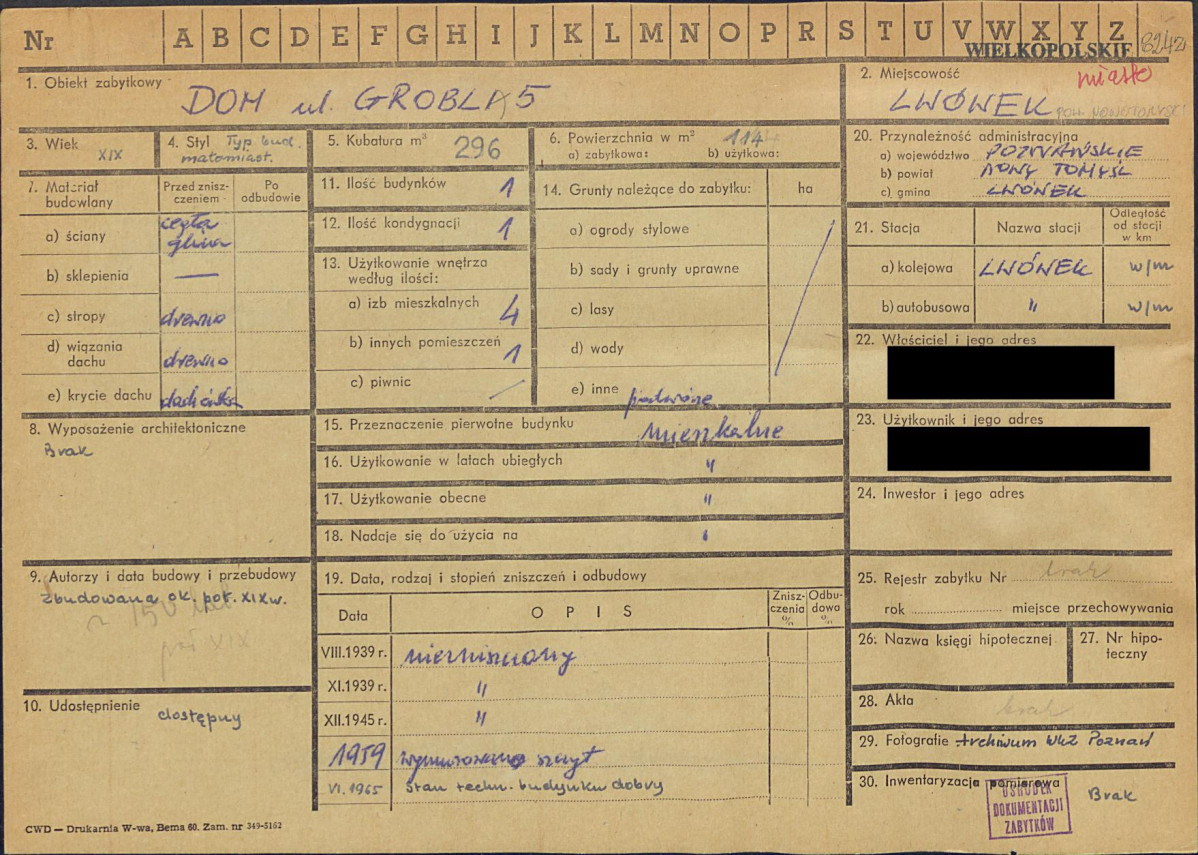 Nr A B C D E F G H I J K L M N O P R S T U V W X Y Z
WIELKOPOLSKIE
1. Obiekt zabytkowy
DOM ul. GROBLA 5
2. Miejscowość
miasto
LWÓWEK
POW. NOWOTOMYSKI
3. Wiek
XIX
4. Styl Typ bud.
małomiast.
5. Kubatura m³ 296
6. Powierzchnia w m² 114
a) zabytkowa: b) użytkowa:
20. Przynależność administracyjna
a) województwo POZNAŃSKIE
b) powiat NOWY TOMYŚL
c) gmina LWÓWEK
7. Materiał budowlany
Przed zniszczeniem
Po odbudowie
a) ściany cegła
glina
b) sklepienia —
c) stropy drewno
d) wiązania dachu drewno
e) krycie dachu dachówka
11. Ilość budynków 1
12. Ilość kondygnacji 1
13. Użytkowanie wnętrza według ilości:
a) izb mieszkalnych 4
b) innych pomieszczeń 1
c) piwnic —
14. Grunty należące do zabytku: ha
a) ogrody stylowe
b) sady i grunty uprawne
c) lasy
d) wody
e) inne podwórze
21. Stacja Nazwa stacji Odległość od stacji w km
a) kolejowa LWÓWEK w/m
b) autobusowa " w/m
22. Właściciel i jego adres
23. Użytkownik i jego adres
24. Inwestor i jego adres
8. Wyposażenie architektoniczne
Brak
15. Przeznaczenie pierwotne budynku mieszkalne
16. Użytkowanie w latach ubiegłych "
17. Użytkowanie obecne "
18. Nadaje się do użycia na "
9. Autorzy i data budowy i przebudowy
zbudowana ok. poł. XIX w.
~ 150 lat
poł XIX
10. Udostępnienie dostępny
19. Data, rodzaj i stopień zniszczeń i odbudowy
Data OPIS Zniszczenia % Odbudowa %
VIII.1939 r. niezniszczony
XI.1939 r. "
XII.1945 r. "
1959 wymurowano szczyt
VI.1965 Stan techn. budynku dobry
25. Rejestr zabytku Nr brak
rok miejsce przechowywania
26. Nazwa księgi hipotecznej
27. Nr hipoteczny
28. Akta brak
29. Fotografie Archiwum WKZ Poznań
30. Inwentaryzacja pomiarowa
Brak
OŚRODEK
DOKUMENTACJI
ZABYTKÓW
CWD — Drukarnia W-wa, Bema 60. Zam. nr 349-5162